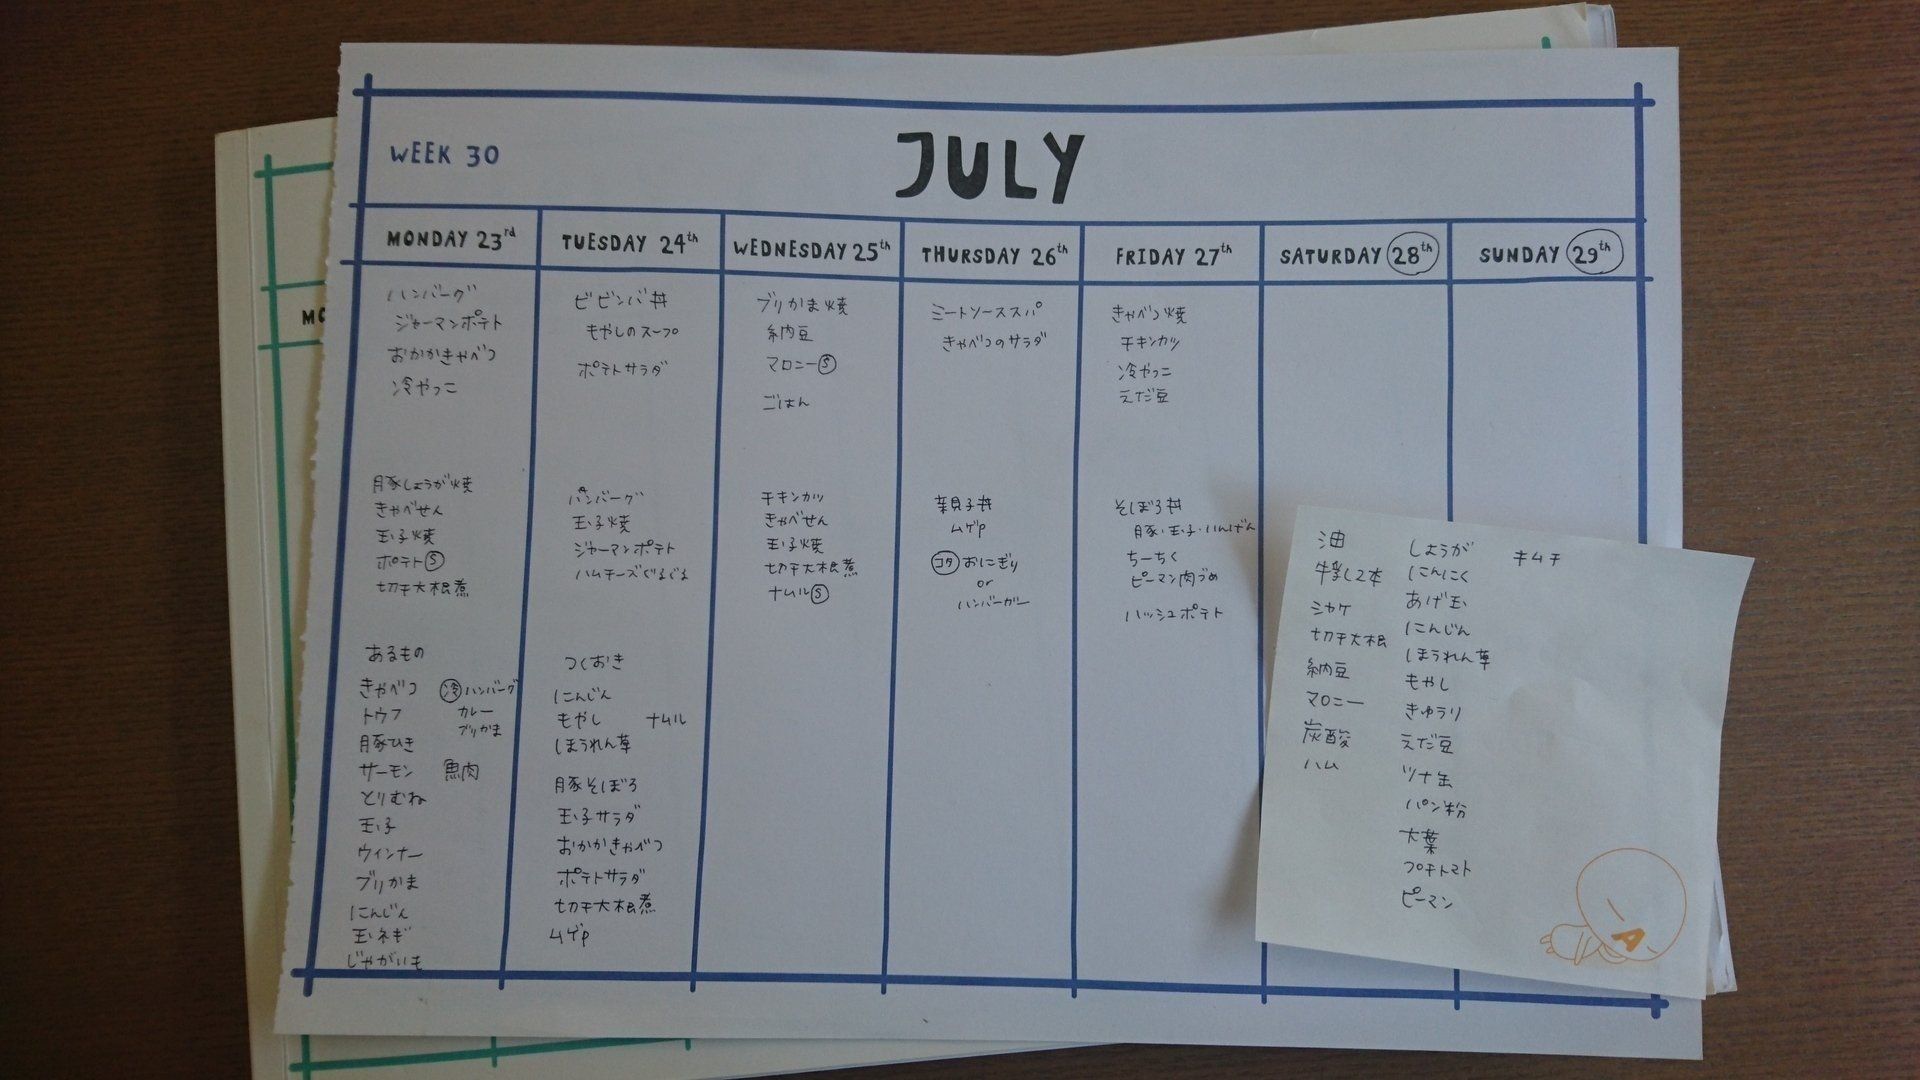 WEEK 30
JULY
MONDAY 23rd
TUESDAY 24th
WEDNESDAY 25th
THURSDAY 26th
FRIDAY 27th
SATURDAY 28th
SUNDAY 29th
ハンバーグ
ジャーマンポテト
おかかきゃべつ
冷やっこ
豚しょうが焼
きゃべせん
玉子焼
ポテトⓢ
切干大根煮
あるもの
きゃべつ
トウフ
豚ひき
サーモン
とりむね
玉子
ウィンナー
ブリかま
にんじん
玉ネギ
じゃがいも
冷 ハンバーグ
カレー
ブリかま
魚肉
ビビンバ丼
もやしのスープ
ポテトサラダ
ハンバーグ
玉子焼
ジャーマンポテト
ハムチーズぐるぐる
つくおき
にんじん
もやし ナムル
ほうれん草
豚そぼろ
玉子サラダ
おかかきゃべつ
ポテトサラダ
切干大根煮
ムゲP
ブリかま焼
納豆
マロニーⓢ
ごはん
チキンカツ
きゃべせん
玉子焼
切干大根煮
ナムルⓢ
ミートソーススパ
きゃべつのサラダ
親子丼
ムゲP
コタ おにぎり
or
ハンバーガー
きゃべつ焼
チキンカツ
冷やっこ
えだ豆
そぼろ丼
豚・玉子・いんげん
ちーちく
ピーマン肉づめ
ハッシュポテト
油
牛乳2本
シャケ
切干大根
納豆
マロニー
炭酸
ハム
しょうが
にんにく
あげ玉
にんじん
ほうれん草
もやし
きゅうり
えだ豆
ツナ缶
パン粉
大葉
プチトマト
ピーマン
キムチ
A